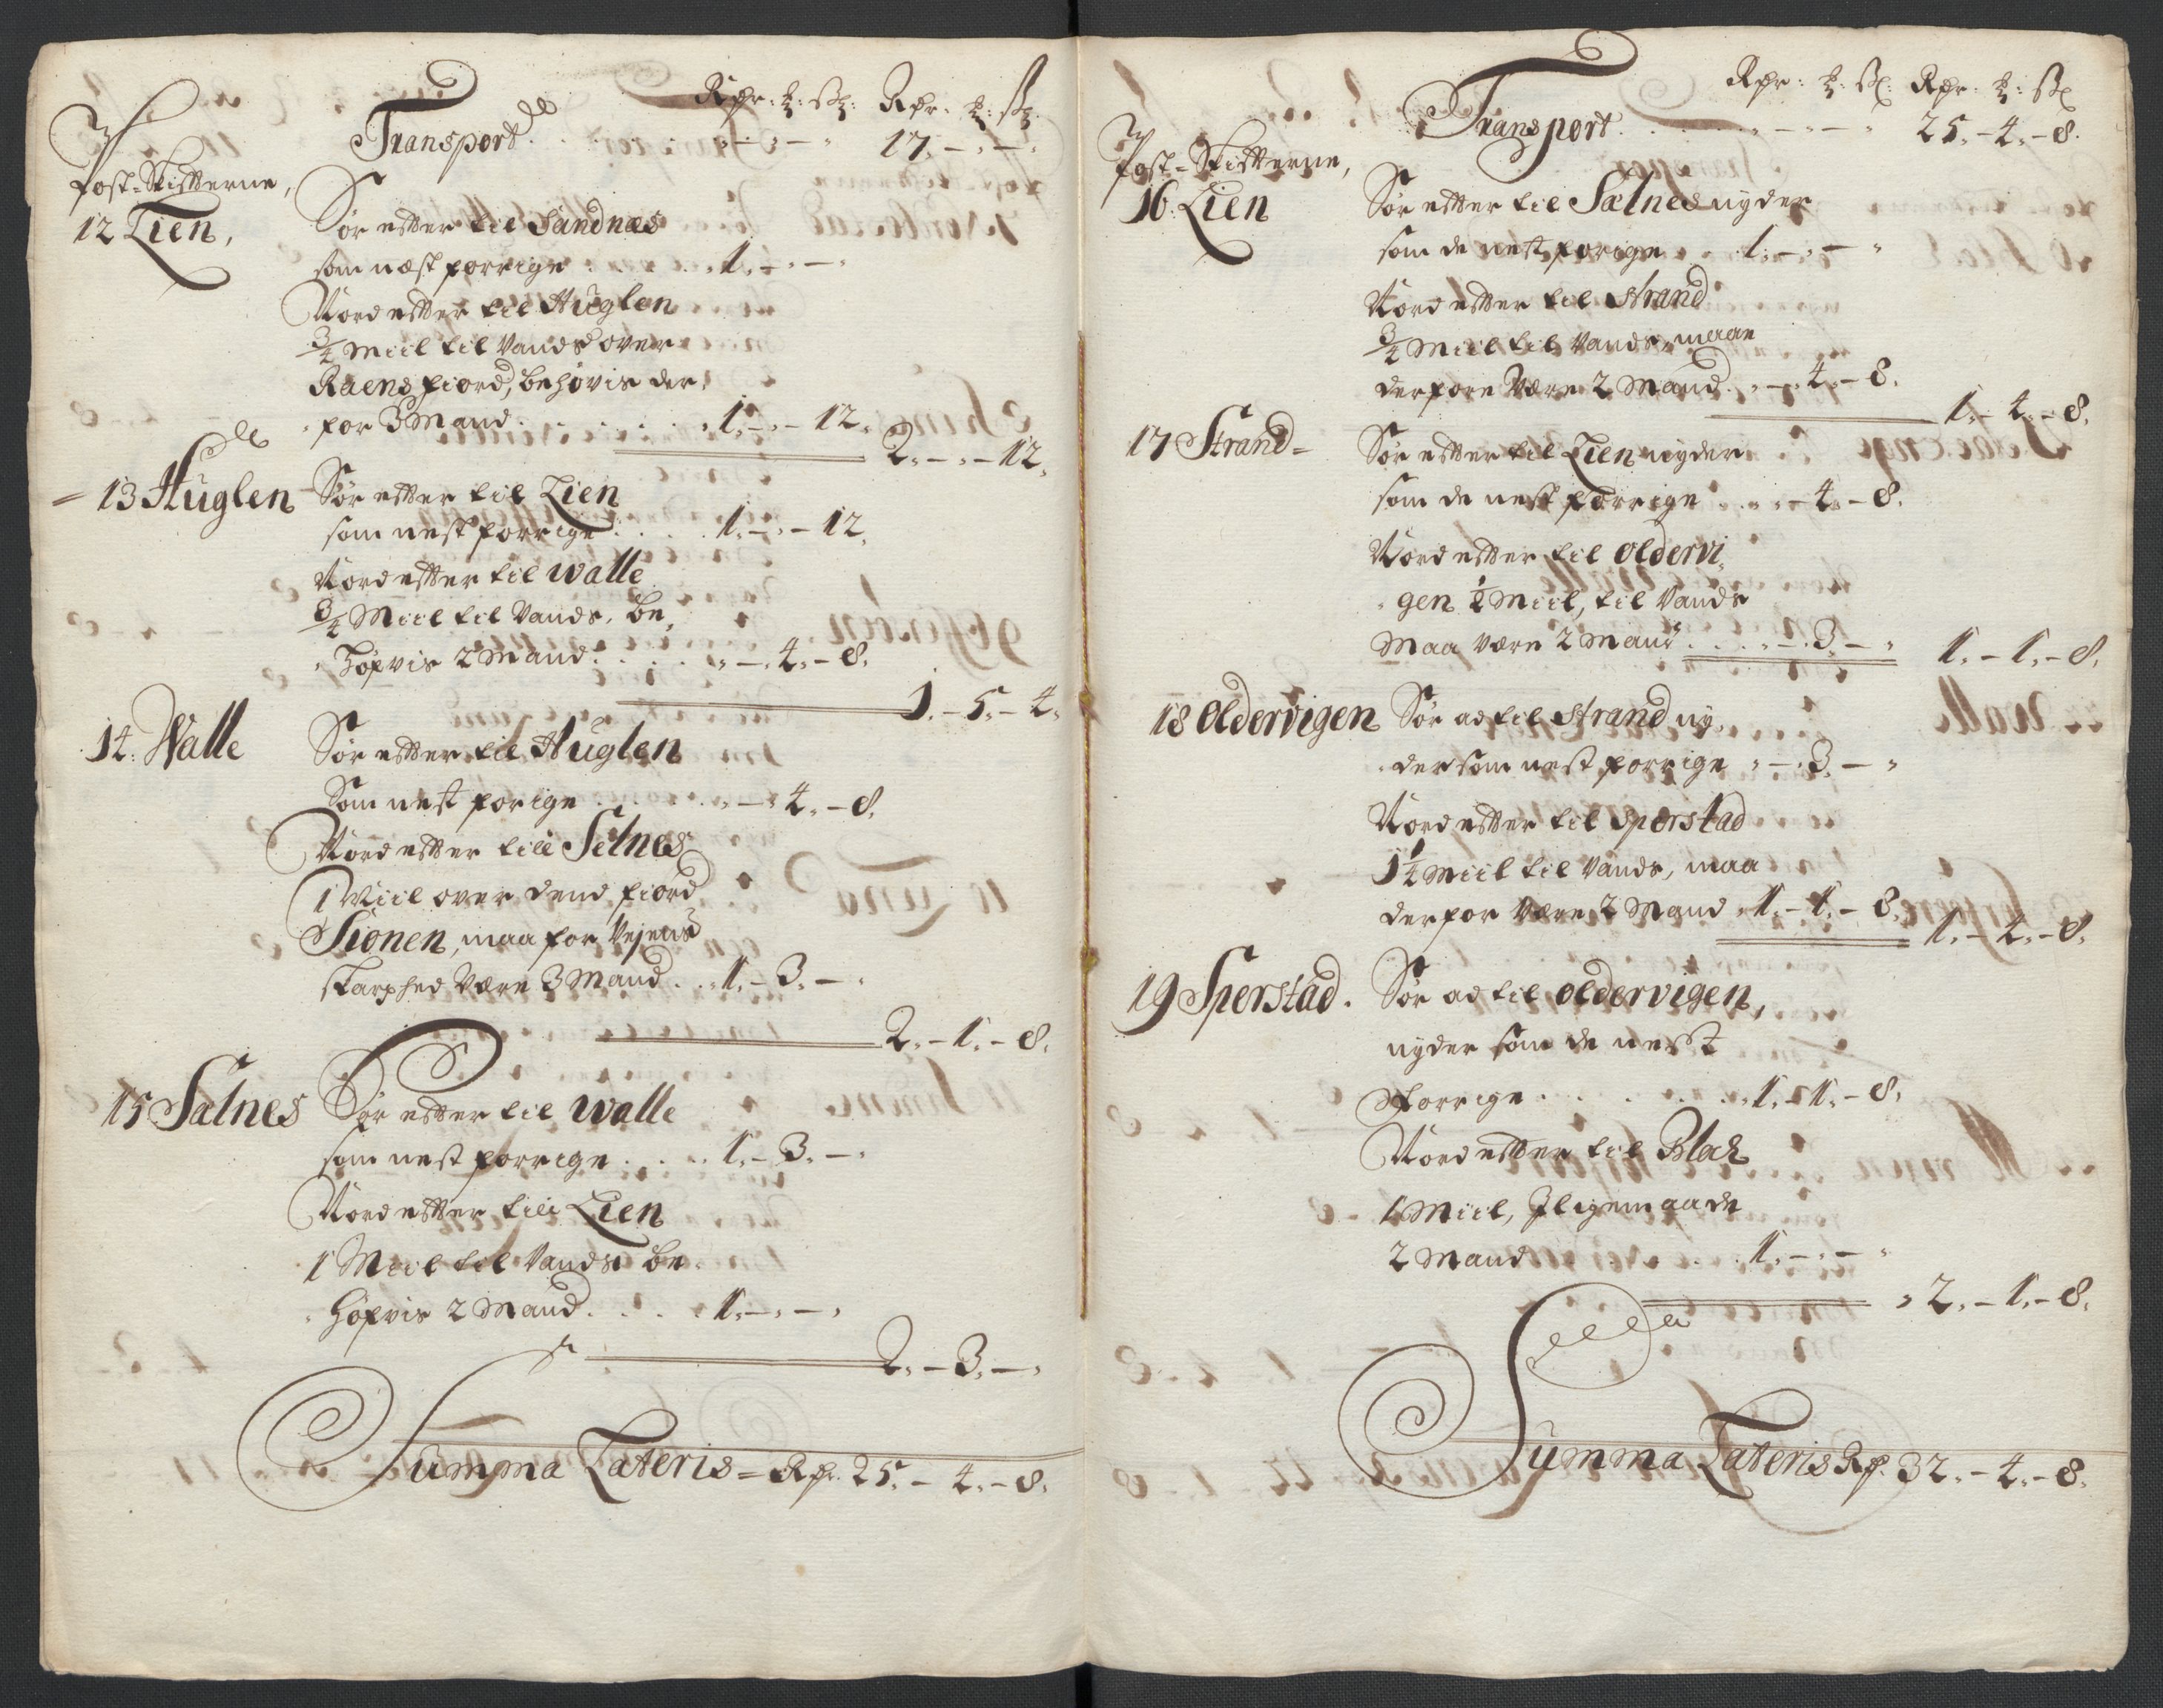 Rdr: ℔: ß: Rdr: ℔: ß:
Transport . . „ - „ - „ 17. - „ - „
Post-Skifterne,
12 Lien, Sør efter til Sandnæs
som næst forrige . . . . 1. - „ -
Nord efter til Huglen
3/4 Miil til Vands over
Raensfiord, behøvis der,
for 3 Mand . . . . . 1. - „ - 12.
2. - „ - 12.
13 Huglen Sør efter til Lien
som nest forrige . . . . 1. - „ - 12.
Nord efter til Walle
3/4 Miil til Vands, be,
høfvis 2 Mand . . . . „ - 4. - 8.
1. - 5. - 4.
14. Walle Sør efter til Huglen
Som nest forige . . . . „ - 4. - 8.
Nord efter till Selnes
1 Miil over dend fiord
Sionen, maa for Vejens
skarphed Være 3 Mand . . 1. - 3. - „
2. - 1. - 8.
15 Sælnes Sør efter til Walle
som nest forrige . . . 1. - 3. - „
Nord efter till Lien
1 Miil til Vands be
høfvis 2 Mand . . . . 1. - „ - „
2. - 3. - „
Summa Lateris = Rdr. 25. - 4. - 8.
Rdr: ℔: ß: Rdr: ℔: ß:
Transport . . . „ - „ - „ 25. - 4. - 8.
Post-Skifterne,
16. Lien Sør efter til Sælnes nyder
som de nest forige . . 1. - „ - „
Nord efter til Strand
3/4 Miil til Vands, maae
derfore Være 2 Mand . „ - 4. - 8.
1. - 4. - 8.
17 Strand = Sør efter til Lien nyder
som de nest forrige . . „ - 4. - 8.
Nord efter til oldervi,
gen 1/2 Miil, til Vands
Maa Være 2 Mand . . . . „ - 3. - „
1. - 1. - 8.
18 oldervigen Sør ad til Strand ny,
der som nest forrige „ - 3. - „
Nord efter til Sperstad
1 1/4 Miil til Vands, maa
derfor Være 2 Mand „ 1. - 1. - 8.
1. - 4. - 8.
19 Sperstad. Sør ad til oldervigen,
nyder som de nest
forrige . . . . . . 1. - 1. - 8.
Nord efter til Blach
1 Miil, Jligemaade
2 Mand . . . . . 1. - „ - „
„ 2. - 1. - 8.
Summa Lateris Rdr. 32. - 4. - 8.